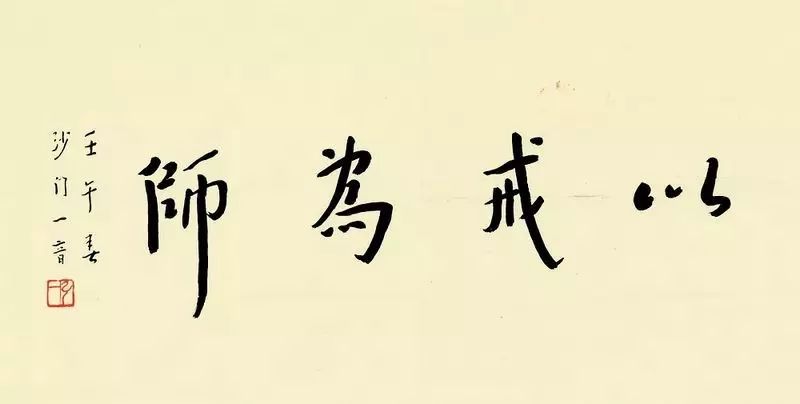 以戒為師
壬午春
沙门一音
弘一